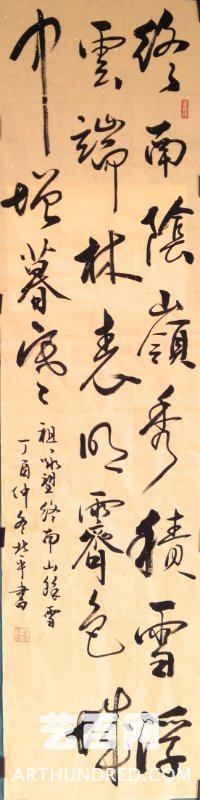 終南陰嶺秀積雪浮
雲端林表明霽色城
中增暮寒
祖詠望終南山餘雪
丁酉仲冬平書
艺百网
ARTHUNDRED.COM